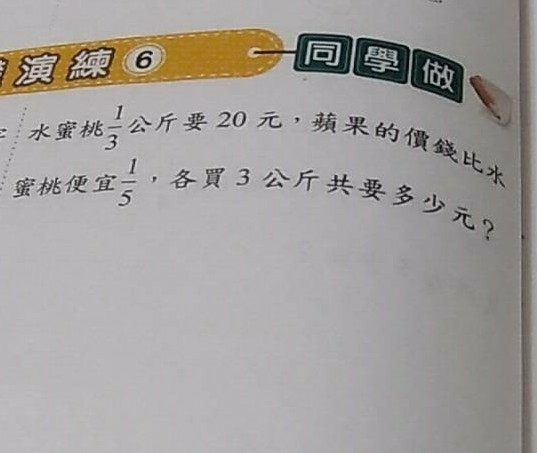 演練 6
同學做
水蜜桃1/3公斤要20元,蘋果的價錢比水
蜜桃便宜1/5,各買3公斤共要多少元?